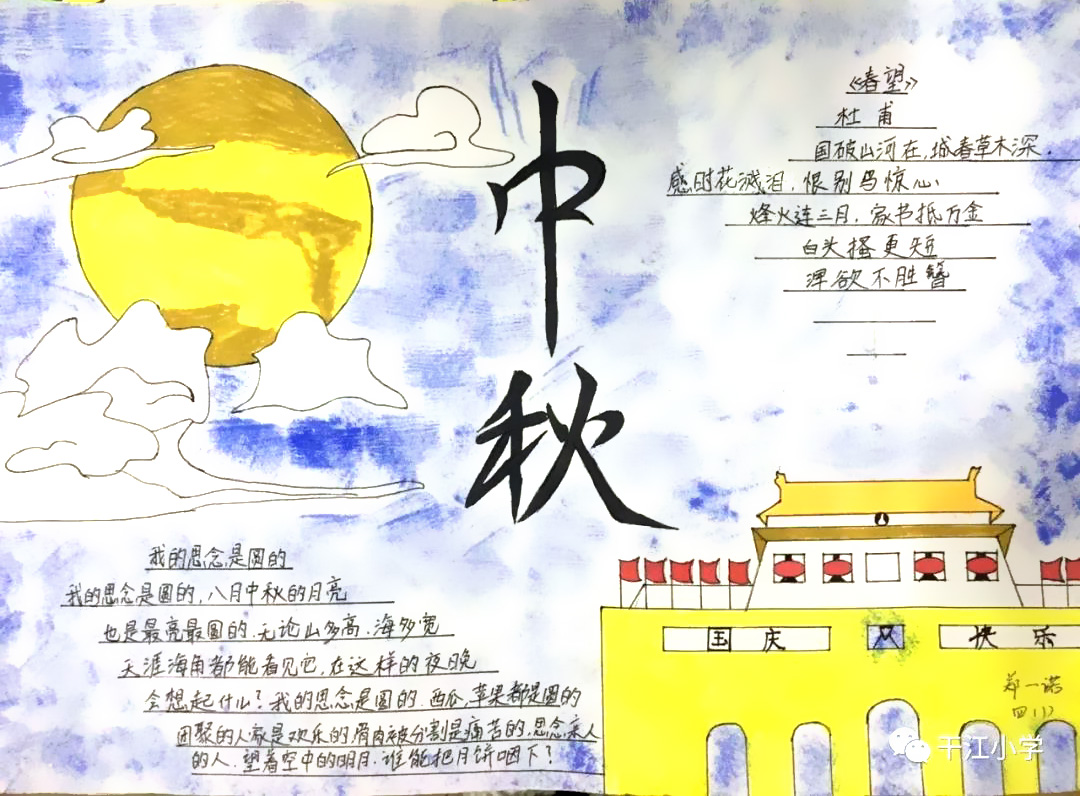 中
秋
《春望》
杜甫
国破山河在,城春草木深.
感时花溅泪.恨别鸟惊心
烽火连三月,家书抵万金
白头搔更短
浑欲不胜簪
我的思念是圆的
我的思念是圆的,八月中秋的月亮
也是最亮最圆的.无论山多高.海多宽
天涯海角都能看见它,在这样的夜晚
会想起什么?我的思念是圆的.西瓜,苹果都是圆的
团聚的人家是欢乐的骨肉被分割是痛苦的.思念亲人
的人.望着空中的明月.谁能把月饼咽下?
国庆 快乐
郑一诺
四(1)
干江小学